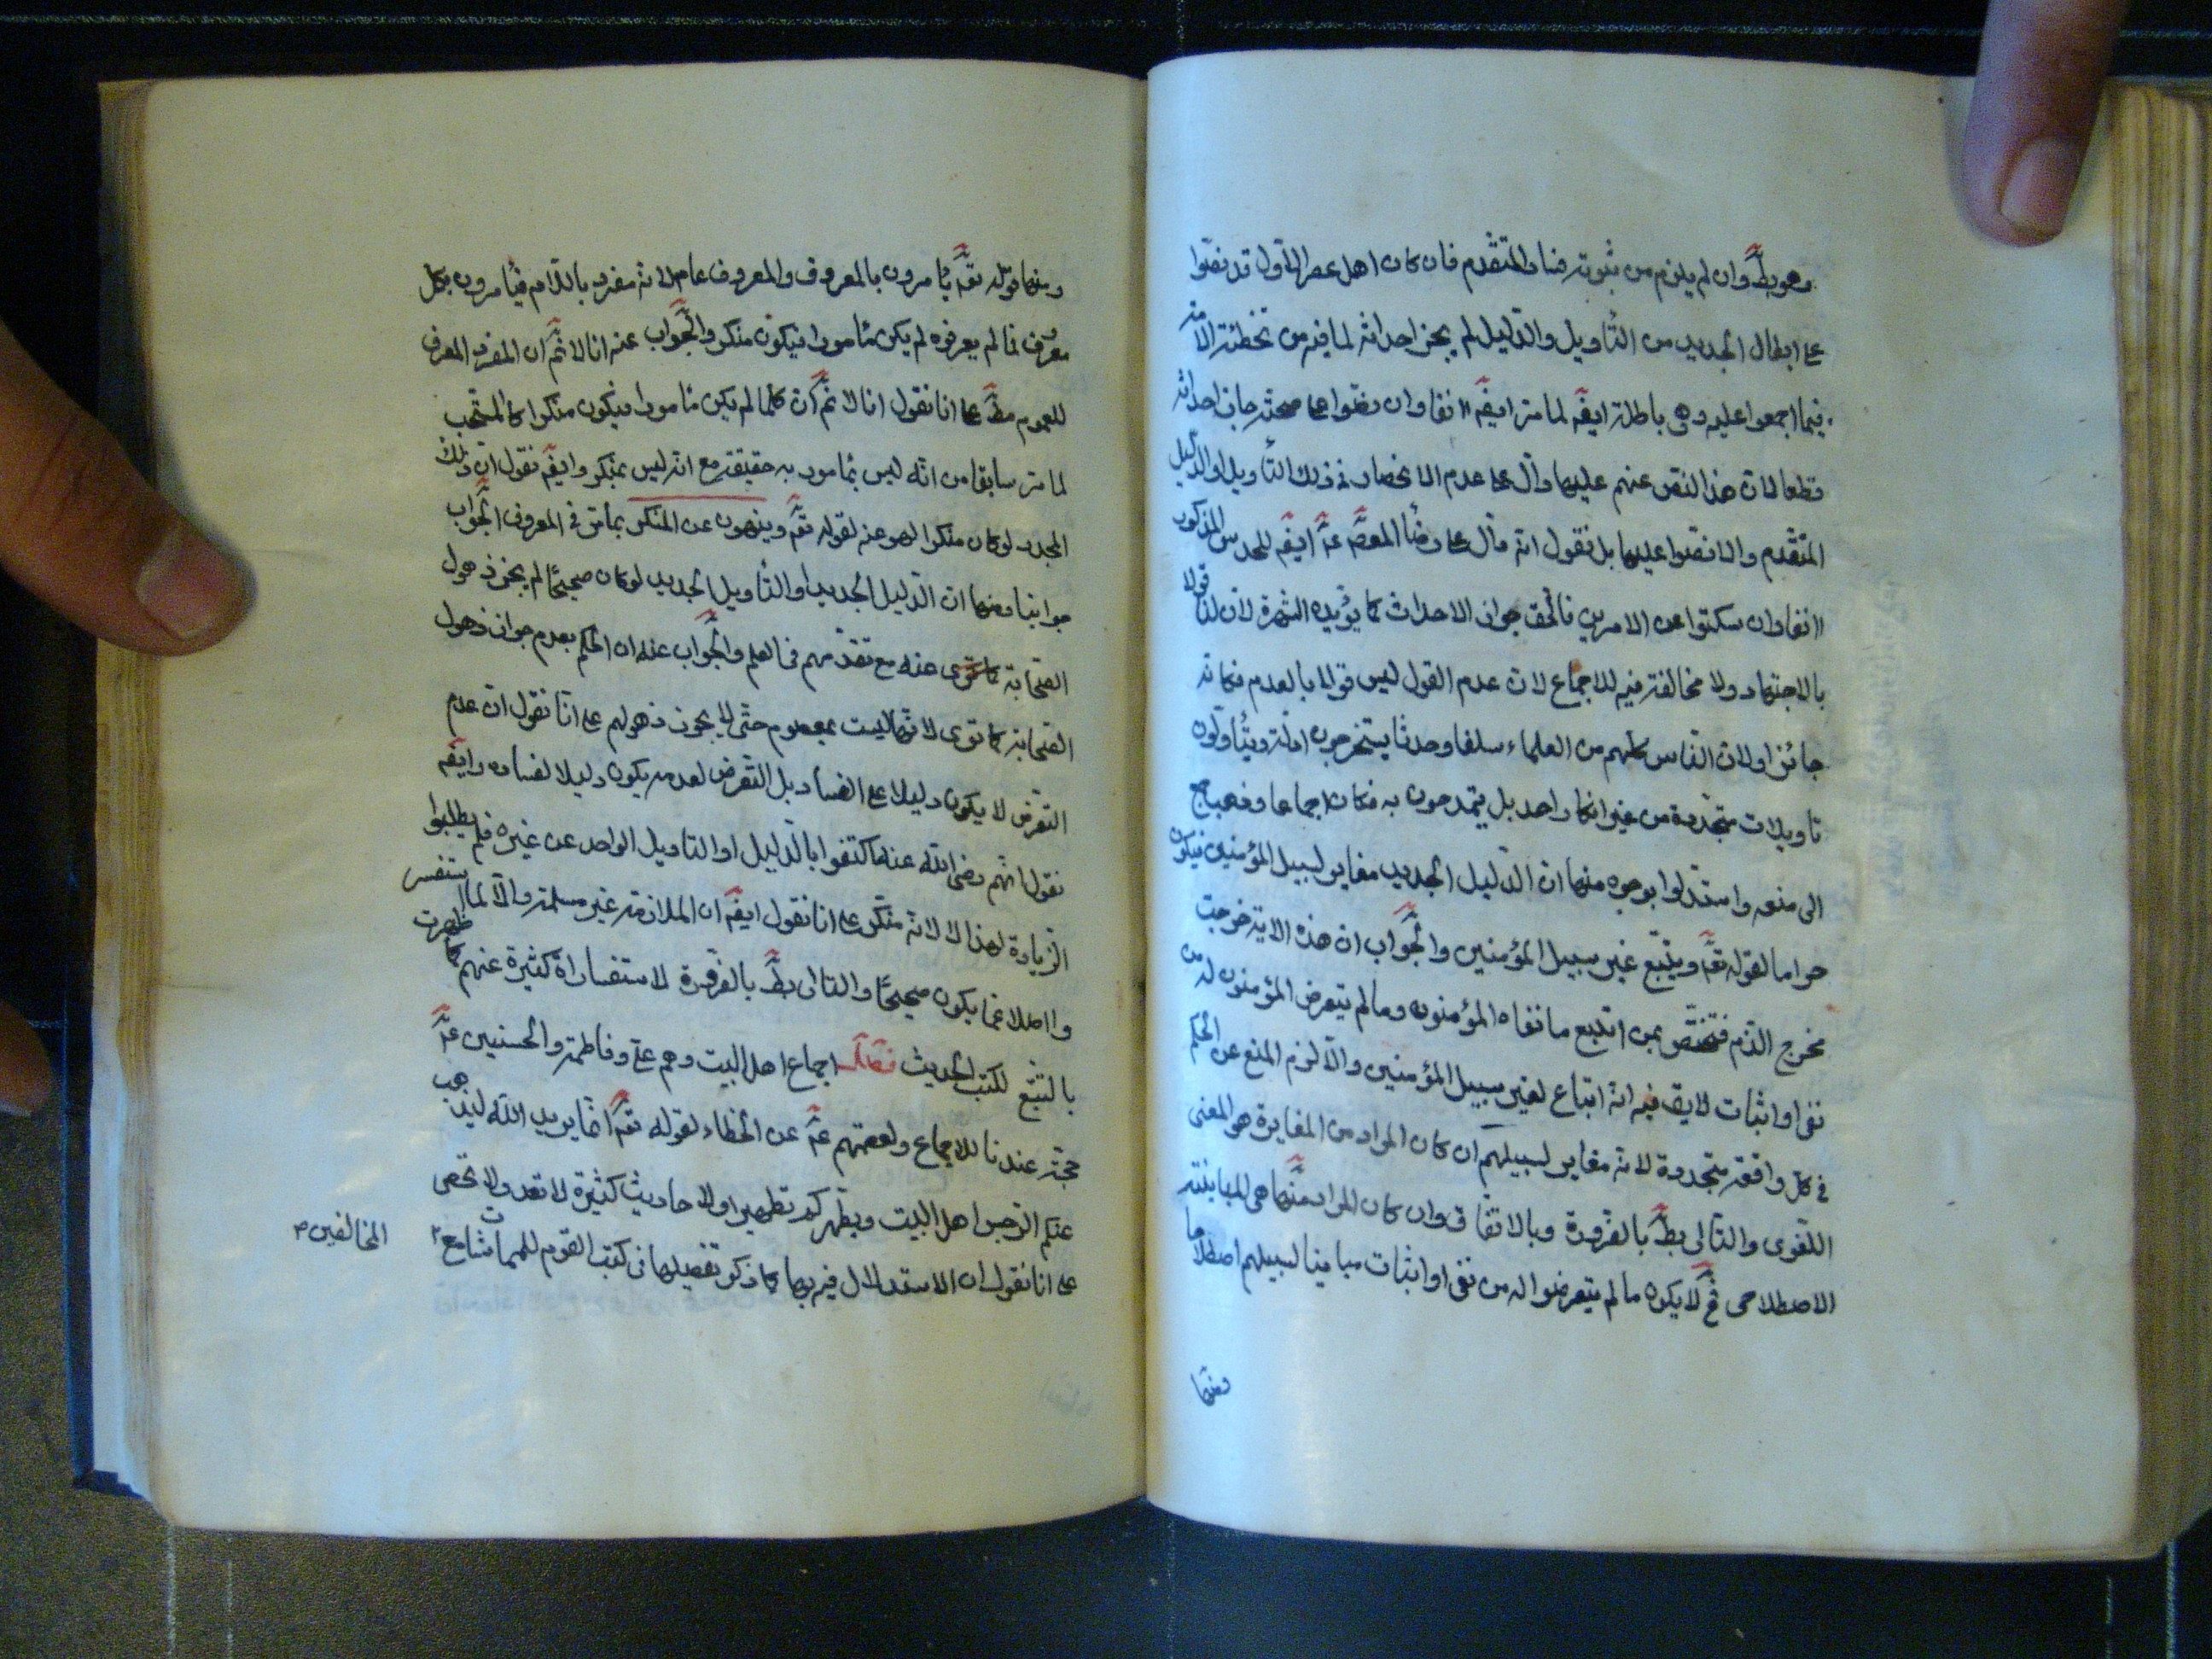 وهو بط وان لم يلزم من ثبوته فساد المتقدم فان كان اهل عصر الاول قد نصّوا
على ابطال الجديد من التأويل والدليل لم يجز احداثه لما فيه من تخطئة الامة
فيما اجمعوا عليه وهى باطلة ايضَ لما مر ايضَ انفا وان نصوا على صحته جاز احداثه
قطعا لان هذا النص عنهم عليها دال على عدم الانحصار فى ذلك التأويل او الدليل
المتقدم والا نصوا عليها بل نقول انه دال على رضا المعصَ عمَ ايضَ للحدس المذكور
انفا وان سكتوا عن الامرين فالحق جواز الاحداث كما يؤيده الشهرة لان لنا قولا
بالاجتهاد ولا مخالفة فيه للاجماع لان عدم القول ليس قولا بالعدم فكانه
جائز اولان الناس كلهم من العلماء سلفا وحدثا يستخرجون ادلة ويتأولون
تاويلات متجددة من غير انكار احد بل يتمدحون به فكان اجماعا وذهب جمع
الى منعه واستدلوا بوجوه منها ان الدليل الجديد مغاير لسبيل المؤمنين فيكون
حراما لقوله تعَ ويتبع غير سبيل المؤمنين والجَواب ان هذه الاية خرجت
مخرج الذم فتختص بمن اتبع ما نفاه المؤمنون وما لم يتعرض المؤمنون له من
نفى او اثبات لا يقَ فيه انه اتباع لغير سبيل المؤمنين والا لزم المنع عن الحكم
فى كل واقعة متجددة لانه مغاير لسبيلهم ان كان المراد من المغايرة هو المعنى
اللغوى والتالى بط بالضرورة وبالاتفاق وان كان المراد منها هى المباينة
الاصطلاحى فحَ لا يكون ما لم يتعرضوا له من نفى او اثبات مباينا لسبيلهم اصطلاحا
ومنها
ومنها قوله تعَ يأمرون بالمعروف والمعروف عام لانه مفرد باللام فيأمرون بكل
معروف فما لم يعرفوه لم يكن مأمورا فيكون منكر والجَواب عنه انا لا نمَ ان المفرد المعرف
للعموم مطَ على انا نقول انا لا نمَ ان كلما لم يكن مأمورا فيكون منكرا كالمستحب
لما مر سابقا من انه ليس بمأمور به حقيقة مع انه ليس بمنكر وايضَ نقول ان ذلك
المجدد لو كان منكرا لنهو عنه لقوله تعَ وينهون عن المنكر بما مر فى المعروف الجَواب
جوابنا ومنها ان الدليل الجديد او التأويل الجديد لو كان صحيحًا لم يجز ذهول
الصحابة كما ترى عنه مع تقدمهم فى العلم والجَواب عنه ان الحكم بعدم جواز ذهول
الصحابة كما ترى لانها ليست بمعصوم حتى لا يجوز ذهولهم على انا نقول ان عدم
التعرض لا يكون دليلا على الفساد بل التعرض لعدمه يكون دليلا لفساده وايضَ
نقول انهم رضى الله عنه اكتفوا بالدليل او التاويل الواحد عن غيره فلم يطلبوا
الزيادة لهذا لا لانه منكر على انا نقول ايضَ ان الملازمة غير مسلمة والا لما استفسر
واصلا عما يكون صحيحًا والتالى بطَ بالضرورة لاستفساراة كثيرة عنهم كما ظهرت
بالتتبع لكتب الحديث اجماع اهل البيت وهم على وفاطمة والحسنين عمَ
حجة عندنا للاجماع ولعصمتهم عمَ عن الخطاء لقوله تعَ انما يريد الله ليذهب
عنكم الرجس اهل البيت ويطهركم تطهيرا ولاحاديث كثيرة لا تعد ولا تحصى
على انا نقول ان الاستدلال فيه بها كما ذكر تفصيلها فى كتب القوم للمماشات مع
المخالفين